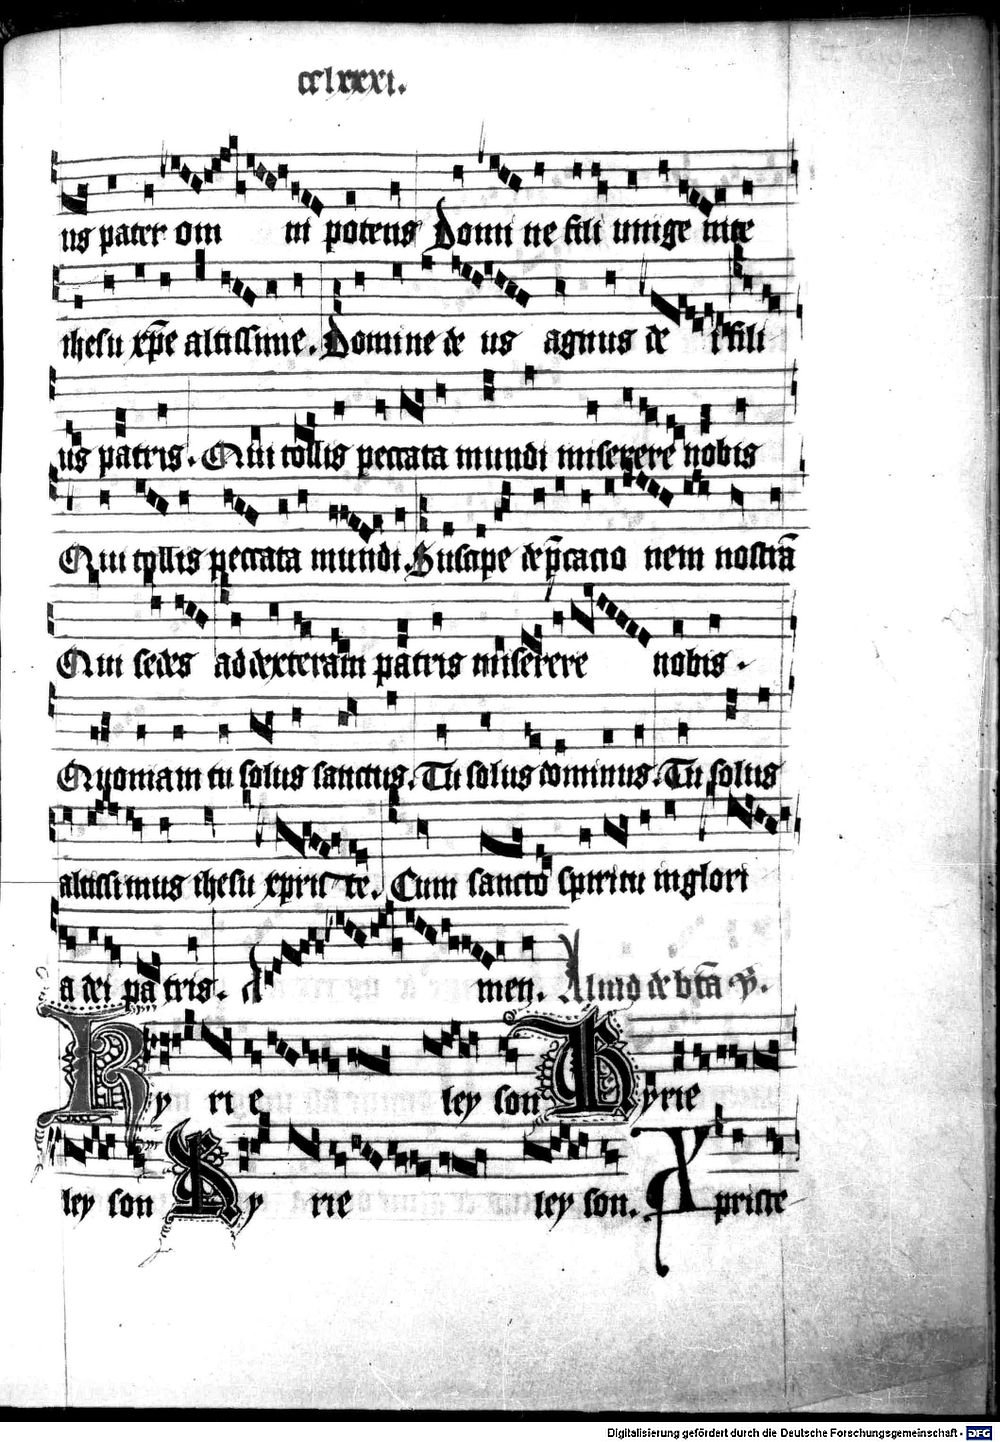 cclxxxi.
us pater om ni potens Domi ne fili unige nite
ihesu xp̄e altissime. Domine de us agnus de i fili
us patris. Qui tollis peccata mundi miserere nobis
Qui tollis peccata mundi. Suscipe dep̄cacio nem nostrā
Qui sedes ad dexteram patris miserere nobis.
Quoniam tu solus sanctus. Tu solus dominus. Tu solus
altissimus ihesu xpris te. Cum sancto spiritu in glori
a dei pa tris. A men. Alind de btā v̄.
Ky rie ley son Kyrie
ley son Ky rie ley son. Xpriste
Digitalisierung gefördert durch die Deutsche Forschungsgemeinschaft - DFG